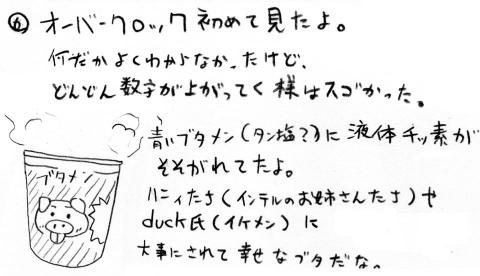 オーバークロック初めて見たよ。
何だかよくわからなかったけど、
どんどん数字が上がってく様はスゴかった。
青いブタメン(タン塩??)に液体チッ素が
そそがれてたよ。
ハニィたち(インテルのお姉さんたち)や
duck氏(イケメン)に
大事にされて幸せなブタだな。
ブタメン